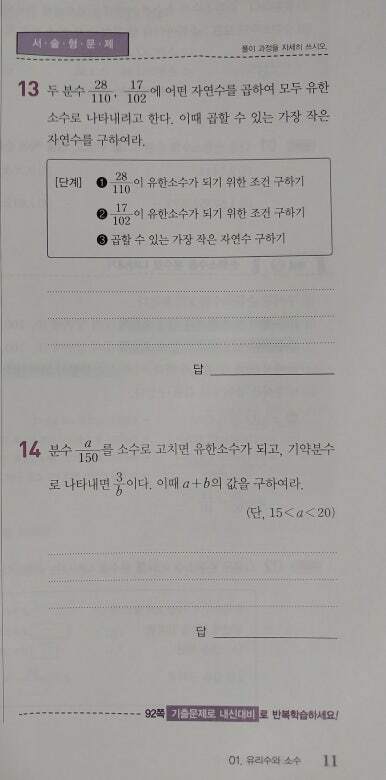 서·술·형·문·제
풀이 과정을 자세히 쓰시오.
13 두 분수 28/110, 17/102에 어떤 자연수를 곱하여 모두 유한
소수로 나타내려고 한다. 이때 곱할 수 있는 가장 작은
자연수를 구하여라.
[단계] ❶ 28/110이 유한소수가 되기 위한 조건 구하기
❷ 17/102이 유한소수가 되기 위한 조건 구하기
❸ 곱할 수 있는 가장 작은 자연수 구하기
답
14 분수 a/150를 소수로 고치면 유한소수가 되고, 기약분수
로 나타내면 3/b이다. 이때 a+b의 값을 구하여라.
(단, 15<a<20)
답
92쪽 기출문제로 내신대비 로 반복학습하세요!
01. 유리수와 소수 11